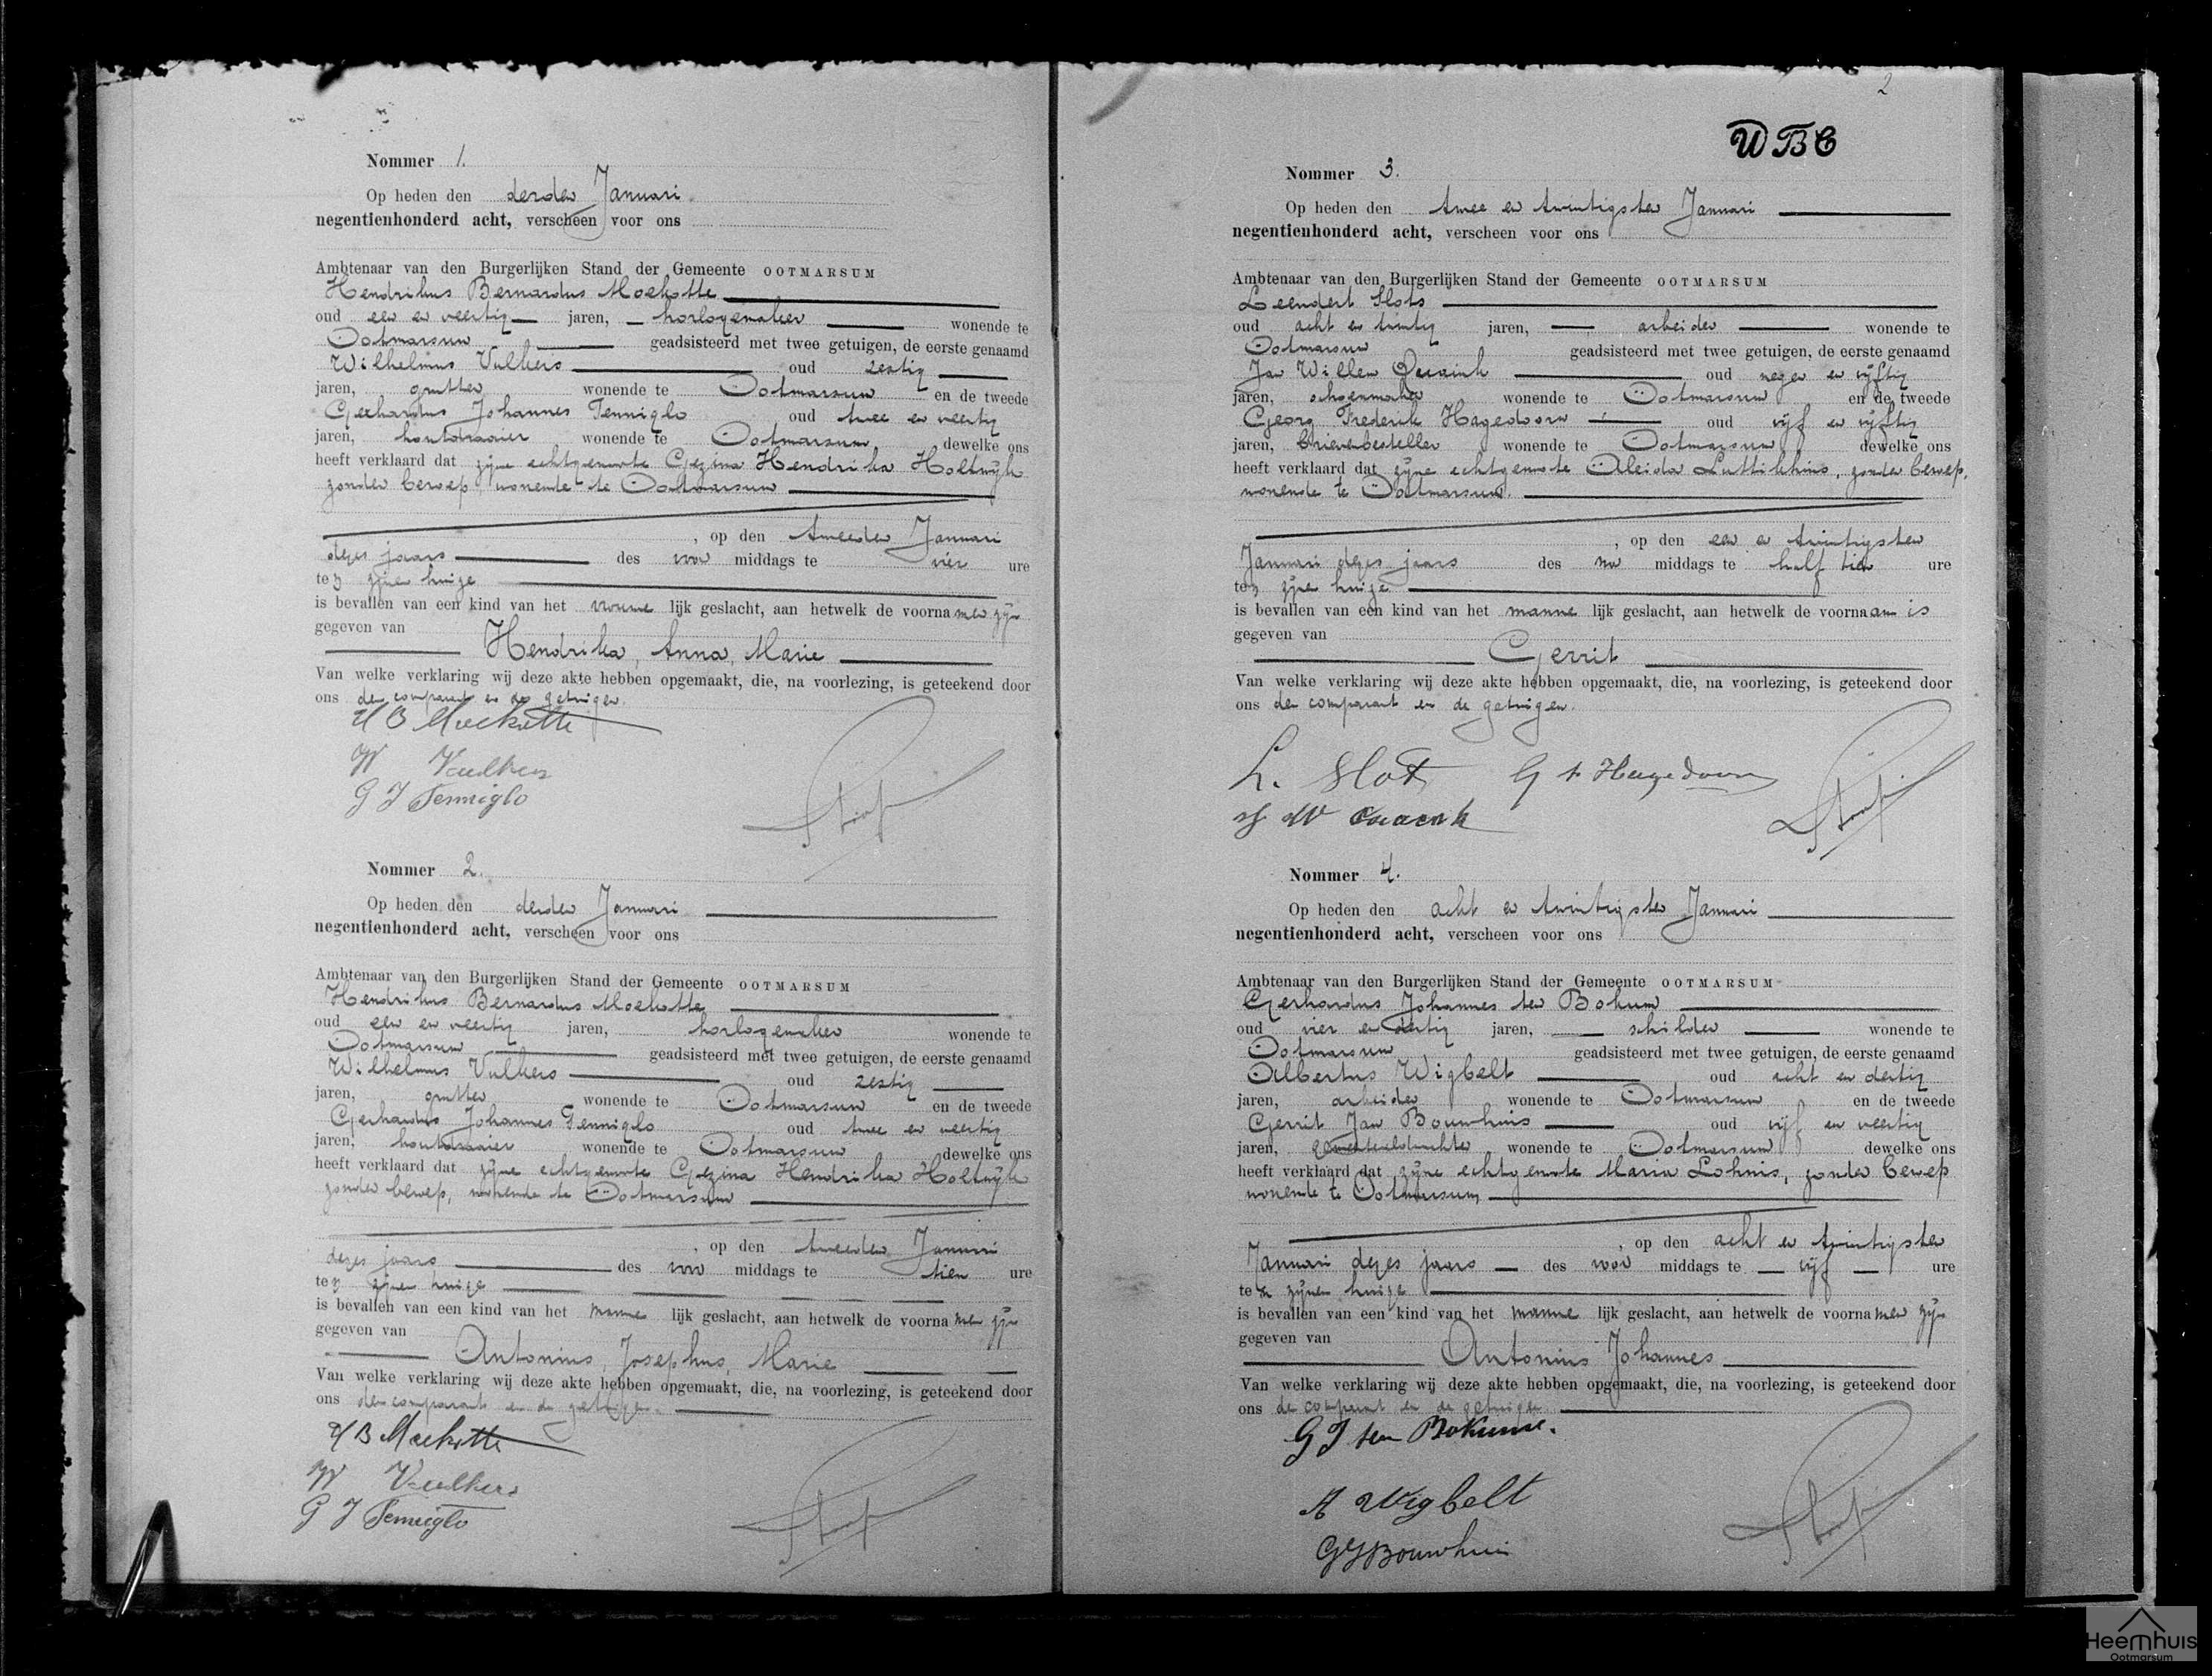 Nommer 1.
Op heden den derden Januari
negentienhonderd acht, verscheen voor ons
Ambtenaar van den Burgerlijken Stand der Gemeente OOTMARSUM
Hendrikus Bernardus Moekotte
oud een en veertig jaren, horlogemaker wonende te
Ootmarsum geadsisteerd met twee getuigen, de eerste genaamd
Wilhelmus Vulkers oud zestig
jaren, grutter wonende te Ootmarsum en de tweede
Gerhardus Johannes Tenniglo oud twee en veertig
jaren, houtdraaier wonende te Ootmarsum dewelke ons
heeft verklaard dat zijne echtgenoote Gezina Hendrika Holtwijk
zonder beroep, wonende te Ootmarsum
, op den tweeden Januari
dezes jaars des voor middags te vier ure
te zijnen huize
is bevallen van een kind van het vrouwe lijk geslacht, aan hetwelk de voorna men zijn
gegeven van
Hendrika, Anna, Marie
Van welke verklaring wij deze akte hebben opgemaakt, die, na voorlezing, is geteekend door
ons den comparant en de getuigen.
H B Moekotte
W Vulkers
G J Tenniglo
Nommer 2.
Op heden den derden Januari
negentienhonderd acht, verscheen voor ons
Ambtenaar van den Burgerlijken Stand der Gemeente OOTMARSUM
Hendrikus Bernardus Moekotte
oud een en veertig jaren, horlogemaker wonende te
Ootmarsum geadsisteerd met twee getuigen, de eerste genaamd
Wilhelmus Vulkers oud zestig
jaren, grutter wonende te Ootmarsum en de tweede
Gerhardus Johannes Tenniglo oud twee en veertig
jaren, houtdraaier wonende te Ootmarsum dewelke ons
heeft verklaard dat zijne echtgenoote Gezina Hendrika Holtwijk
zonder beroep, wonende te Ootmarsum
, op den tweeden Januari
dezes jaars des voor middags te tien ure
te zijnen huize
is bevallen van een kind van het manne lijk geslacht, aan hetwelk de voorna men zijn
gegeven van
Antonius, Josephus, Marie
Van welke verklaring wij deze akte hebben opgemaakt, die, na voorlezing, is geteekend door
ons den comparant en de getuigen.
H B Moekotte
W Vulkers
G J Tenniglo
2
WBC
Nommer 3.
Op heden den twee en twintigsten Januari
negentienhonderd acht, verscheen voor ons
Ambtenaar van den Burgerlijken Stand der Gemeente OOTMARSUM
Leendert Slots
oud acht en twintig jaren, arbeider wonende te
Ootmarsum geadsisteerd met twee getuigen, de eerste genaamd
Jan Willem oud negen en vijftig
jaren, schoenmaker wonende te Ootmarsum en de tweede
Georg Frederik Hagedoorn oud vijf en vijftig
jaren, brievenbesteller wonende te Ootmarsum dewelke ons
heeft verklaard dat zijne echtgenoote Aleida Luttikhuis, zonder beroep,
wonende te Ootmarsum.
, op den een en twintigsten
Januari dezes jaars des na middags te half tien ure
te zijnen huize
is bevallen van een kind van het manne lijk geslacht, aan hetwelk de voornaam is
gegeven van
Gerrit
Van welke verklaring wij deze akte hebben opgemaakt, die, na voorlezing, is geteekend door
ons den comparant en de getuigen.
L. Slot G F Hagedoorn
J W
Nommer 4.
Op heden den acht en twintigsten Januari
negentienhonderd acht, verscheen voor ons
Ambtenaar van den Burgerlijken Stand der Gemeente OOTMARSUM
Gerhardus Johannes ten Bokum
oud vier en dertig jaren, schilder wonende te
Ootmarsum geadsisteerd met twee getuigen, de eerste genaamd
Albertus Wigbelt oud acht en dertig
jaren, arbeider wonende te Ootmarsum en de tweede
Gerrit Jan Bouwhuis oud vijf en veertig
jaren, gemeenteveldwachter wonende te Ootmarsum dewelke ons
heeft verklaard dat zijne echtgenoote Maria Lohuis, zonder beroep
wonende te Ootmarsum
, op den acht en twintigsten
Januari dezes jaars des voor middags te vijf ure
te zijnen huize
is bevallen van een kind van het manne lijk geslacht, aan hetwelk de voorna men zijn
gegeven van
Antonius Johannes
Van welke verklaring wij deze akte hebben opgemaakt, die, na voorlezing, is geteekend door
ons den comparant en de getuigen
G J ten Bokum.
A Wigbelt
G J Bouwhuis
Heemhuis
Ootmarsum